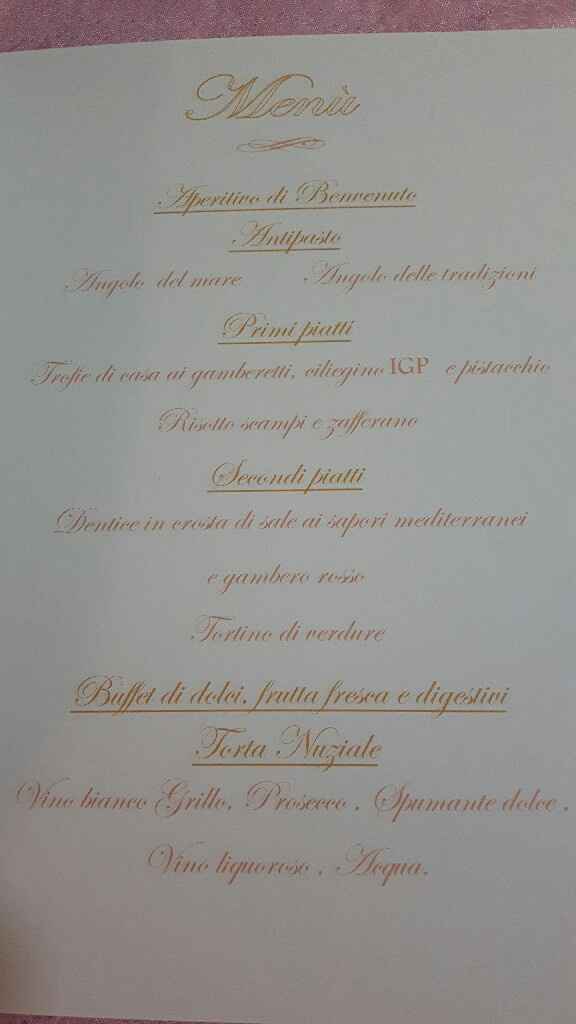 Menù
Aperitivo di Benvenuto
Antipasto
Angolo del mare Angolo delle tradizioni
Primi piatti
Trofie di casa ai gamberetti, ciliegino IGP e pistacchio
Risotto scampi e zafferano
Secondi piatti
Dentice in crosta di sale ai sapori mediterranei
e gambero rosso
Tortino di verdure
Buffet di dolci, frutta fresca e digestivi
Torta Nuziale
Vino bianco Grillo, Prosecco , Spumante dolce ,
Vino liquoroso , Acqua.